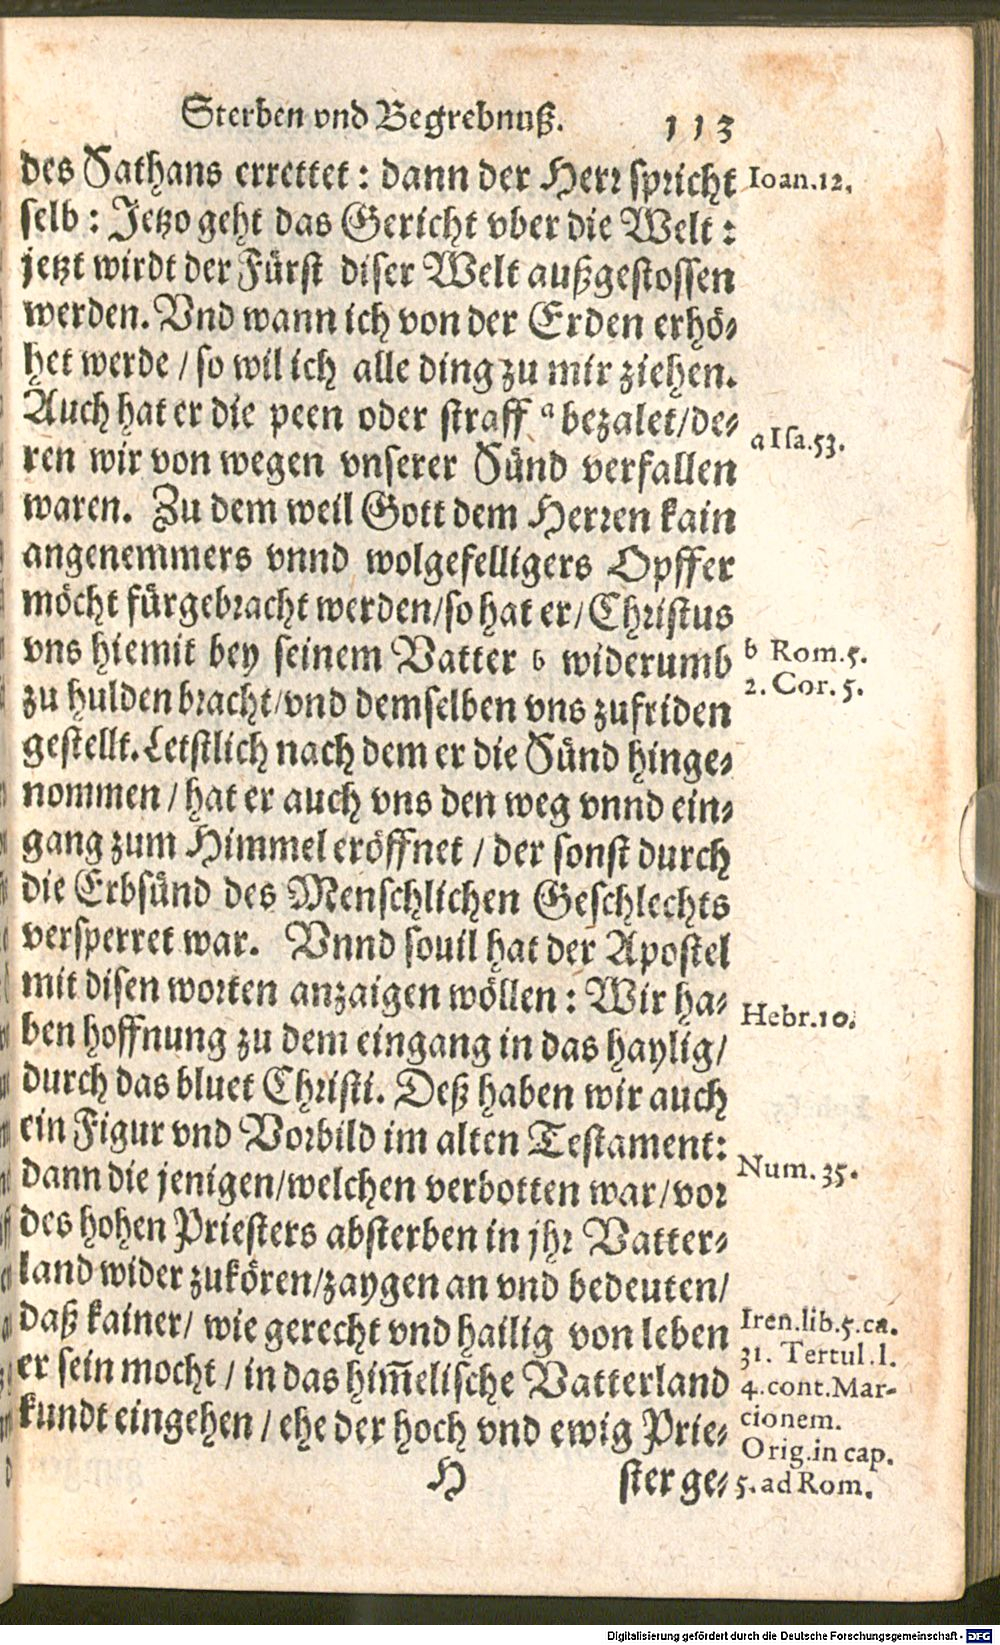 Sterben vnd Begrebnuß. 113
des Sathans errettet: dann der Herr spricht
Ioan.12.
selb: Jetzo geht das Gericht vber die Welt:
jetzt wirdt der Fürst diser Welt außgestossen
werden. Vnd wann ich von der Erden erhö-
het werde / so wil ich alle ding zu mir ziehen.
Auch hat er die peen oder straff a bezalet/de-
a Isa.53.
ren wir von wegen vnserer Sünd verfallen
waren. Zu dem weil Gott dem Herren kain
angenemmers vnnd wolgefelligers Opffer
möcht fürgebracht werden/so hat er/Christus
vns hiemit bey seinem Vatter b widerumb
b Rom.5.
2. Cor. 5.
zu hulden bracht/vnd demselben vns zufriden
gestellt. Letstlich nach dem er die Sünd hinge-
nommen / hat er auch vns den weg vnnd ein-
gang zum Himmel eröffnet / der sonst durch
die Erbsünd des Menschlichen Geschlechts
versperret war. Vnnd souil hat der Apostel
mit disen worten anzaigen wöllen: Wir ha-
Hebr.10.
ben hoffnung zu dem eingang in das haylig/
durch das bluet Christi. Deß haben wir auch
ein Figur vnd Vorbild im alten Testament:
Num. 35.
dann die jenigen/welchen verbotten war/vor
des hohen Priesters absterben in jhr Vatter-
land wider zukören/zaygen an vnd bedeuten/
daß kainer/ wie gerecht vnd hailig von leben
er sein mocht / in das him̃elische Vatterland
kundt eingehen / ehe der hoch vnd ewig Prie-
Iren.lib.5.ca.
31. Tertul.l.
4.cont.Mar-
cionem.
Orig.in cap.
5. ad Rom.
H ster ge-
Digitalisierung gefördert durch die Deutsche Forschungsgemeinschaft - DFG